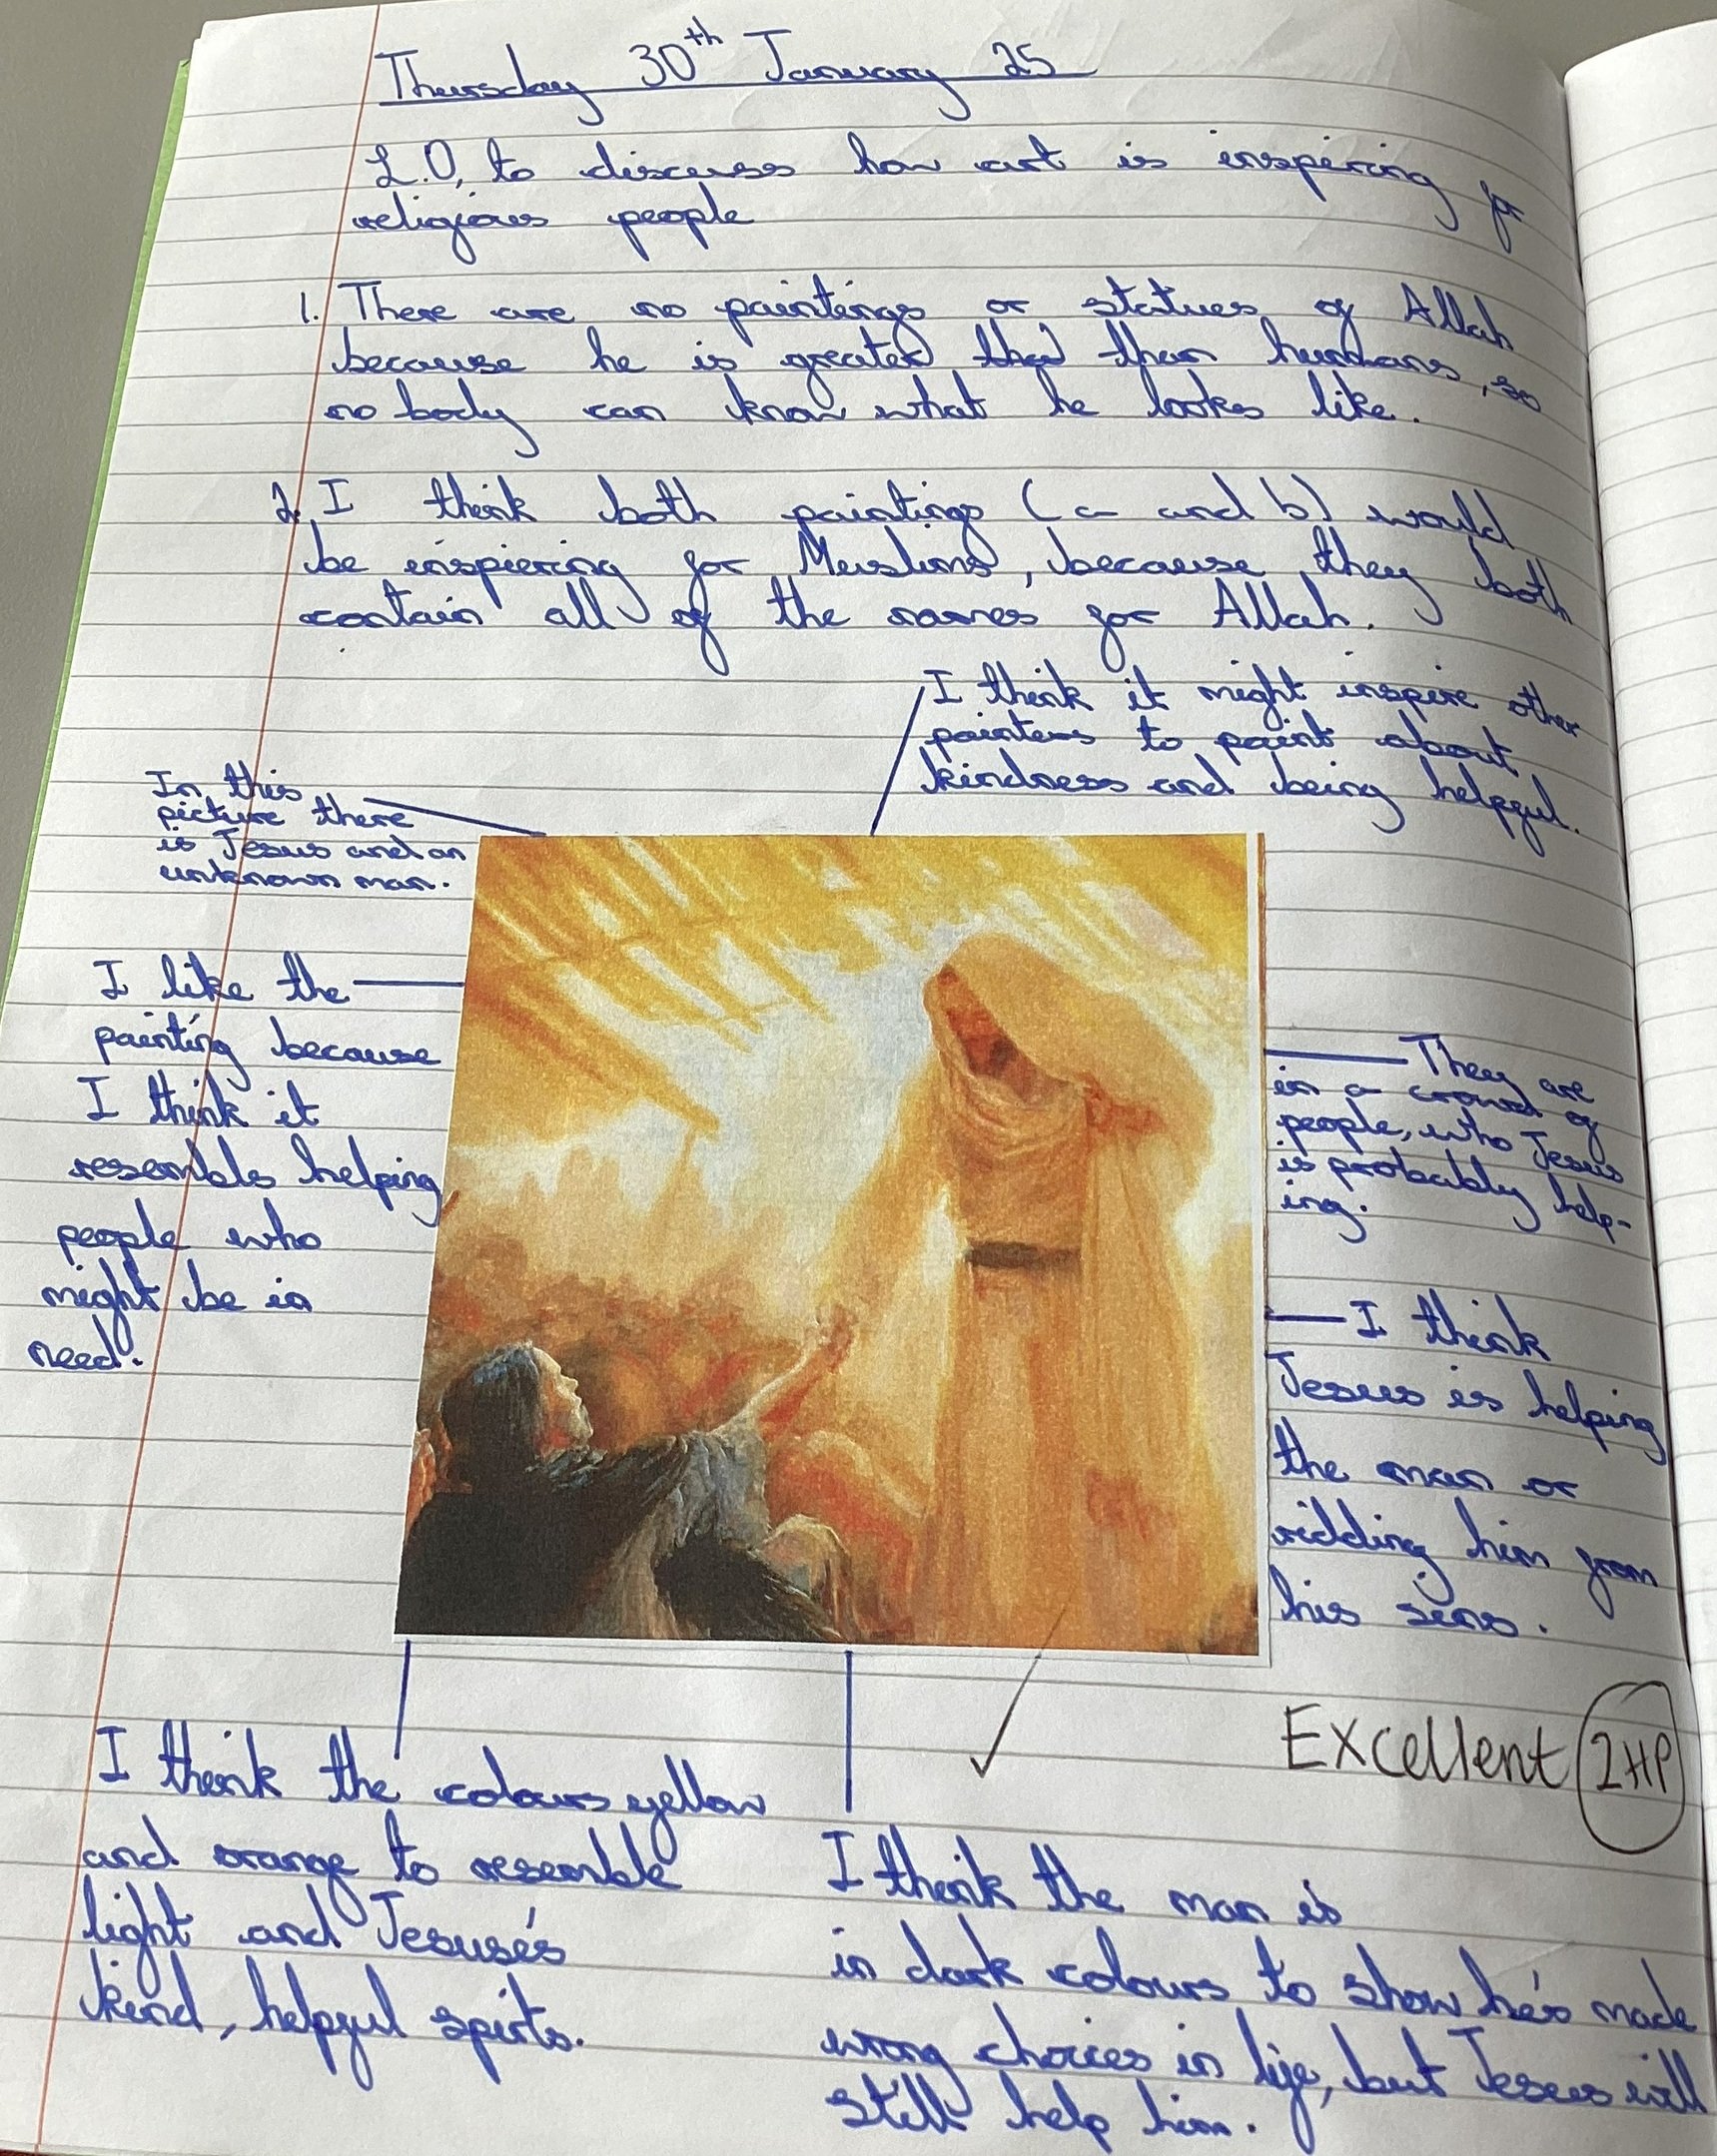 Thursday 30th January 25
L.O, to discuss how art is inspiring for
religious people
1. There are no paintings or statues of Allah
because he is greated than humans, so
no body can know what he lookes like.
2. I think both paintings (a and b) would
be inspiering for Muslims, because they both
contain all of the names for Allah.
I think it might inspire other
painters to paint about
kindness and being helpful.
In this
picture there
is Jesus and an
unknown man.
I like the
painting because
I think it
resembles helping
people who
might be in
need.
They are
in a crowd of
people, who Jesus
is probably help-
ing.
I think
Jesus is helping
the man or
ridding him from
his sins.
Excellent 2HP
I think the colours yellow
and orange to resemble
light and Jesus's
kind, helpful spirts.
I think the man is
in dark colours to show he's made
wrong choices in life, but Jesus will
still help him.